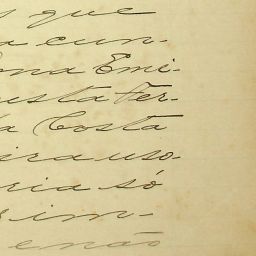 que
a cun-
ona Emi-
usta Fer-
la Costa
ira uso-
ria só
rim-
e não